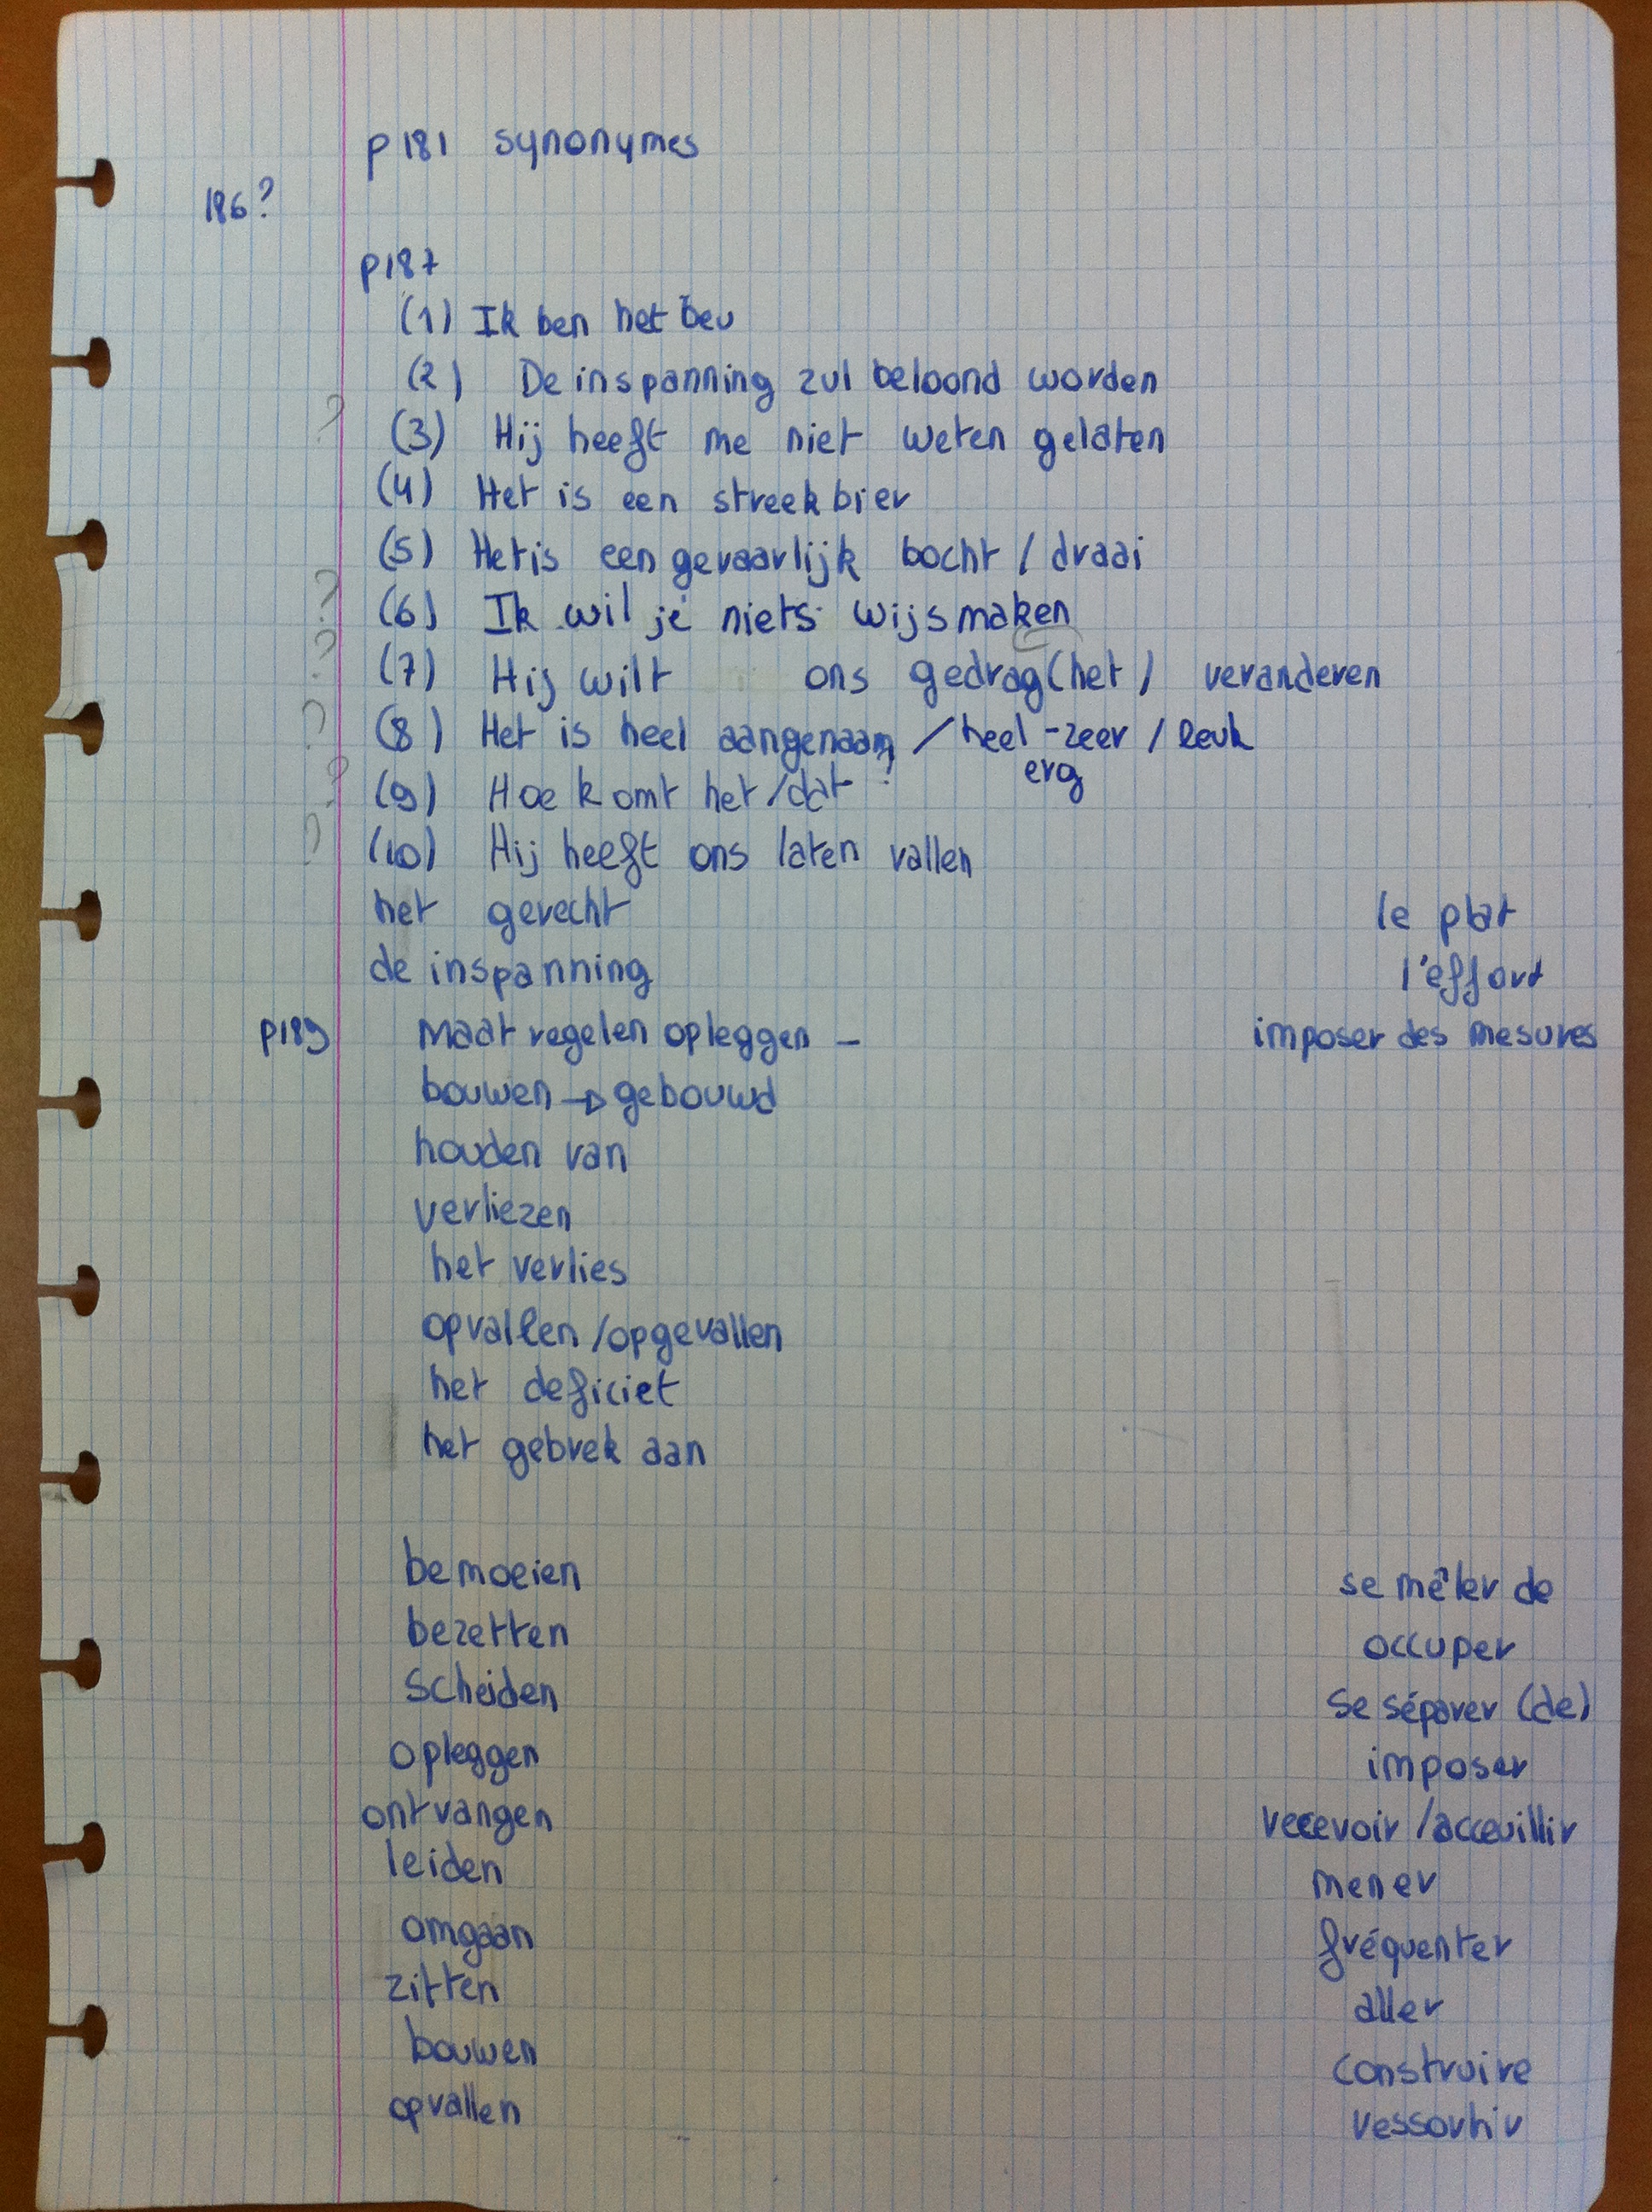 p181 synonymes
186?
p187
(1) Ik ben het beu
(2) De inspanning zul beloond worden
? (3) Hij heeft me niet weten gelaten
(4) Het is een streekbier
(5) Het is een gevaarlijk bocht / draai
? (6) Ik wil je niets wijsmaken
? (7) Hij wilt ons gedrag (het) veranderen
? (8) Het is heel aangenaam / heel - zeer / leuk
erg
? (9) Hoe komt het/dat ?
? (10) Hij heeft ons laten vallen
het gerecht le plat
de inspanning l'effort
p189 Maatregelen opleggen - imposer des mesures
bouwen → gebouwd
houden van
verliezen
het verlies
opvallen/opgevallen
het deficiet
het gebrek aan
bemoeien se mêler de
bezetten occuper
scheiden se séparer (de)
opleggen imposer
ontvangen recevoir /acceuillir
leiden mener
omgaan fréquenter
zitten aller
bouwen construire
opvallen ressorhir